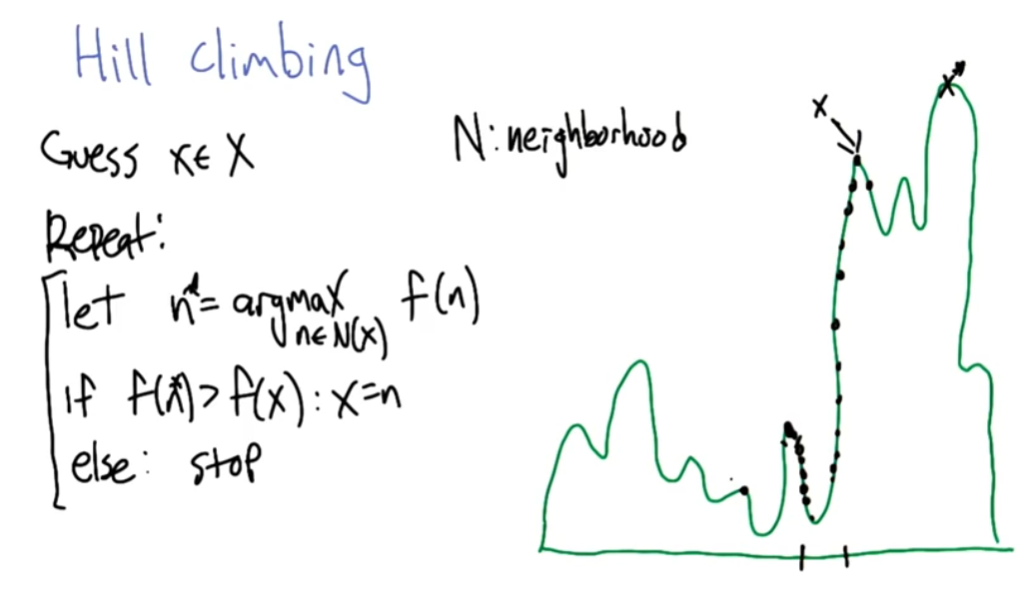 Hill climbing
Guess x∈X
N: neighborhood
Repeat:
let n* = argmax f(n)
n∈N(x)
if f(n*) > f(x): x=n
else: stop
x
x